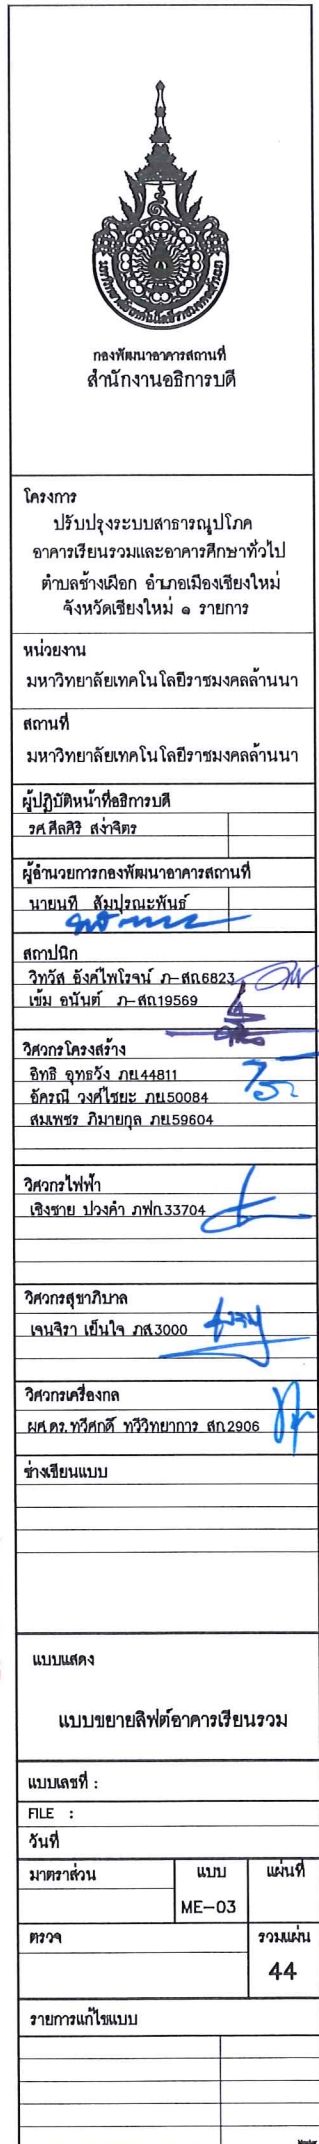 กองพัฒนาอาคารสถานที่
สำนักงานอธิการบดี
โครงการ
ปรับปรุงระบบสาธารณูปโภค
อาคารเรียนรวมและอาคารศึกษาทั่วไป
ตำบลช้างเผือก อำเภอเมืองเชียงใหม่
จังหวัดเชียงใหม่ ๑ รายการ
หน่วยงาน
มหาวิทยาลัยเทคโนโลยีราชมงคลล้านนา
สถานที่
มหาวิทยาลัยเทคโนโลยีราชมงคลล้านนา
ผู้ปฏิบัติหน้าที่อธิการบดี
รศ.ศีลศิริ สง่าจิตร
ผู้อำนวยการกองพัฒนาอาคารสถานที่
นายนที สัมปุรณะพันธ์
สถาปนิก
วิทวัส อิงค์ไพโรจน์ ภ-สถ.6823
เข้ม อนันต์ ภ-สถ19569
วิศวกรโครงสร้าง
อิทธิ อุทธวัง ภย.44811
อัครณี วงศ์ไชยะ ภย.50084
สมเพชร ภิมายกุล ภย.59604
วิศวกรไฟฟ้า
เชิงชาย ปวงคำ ภฟก.33704
วิศวกรสุขาภิบาล
เจนจิรา เย็นใจ ภส.3000
วิศวกรเครื่องกล
ผศ.ดร.ทวีศกดิ์ ทวีวิทยาการ สก.2906
ช่างเขียนแบบ
แบบแสดง
แบบขยายลิฟต์อาคารเรียนรวม
แบบเลขที่ :
FILE :
วันที่
มาตราส่วน แบบ แผ่นที่
ME-03
ตรวจ รวมแผ่น
44
รายการแก้ไขแบบ